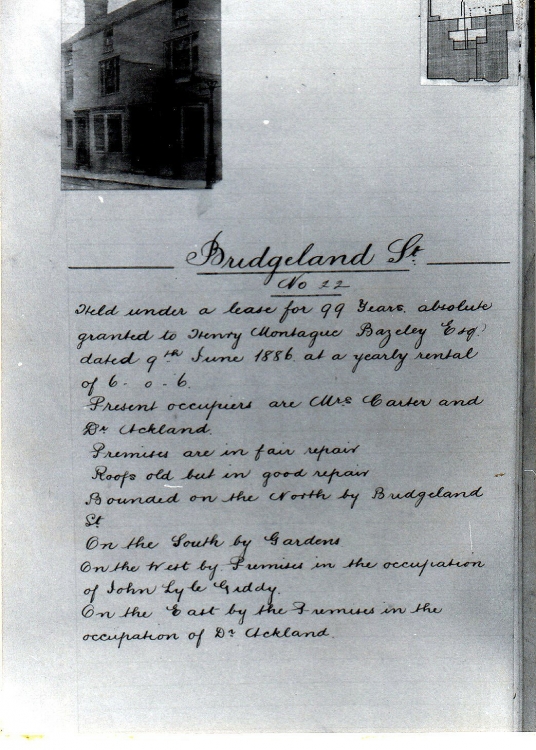 Bridgeland St
No 22
Held under a lease for 99 Years. absolute
granted to Henry Montague Bazeley Esq.
dated 9th June 1886. at a yearly rental
of 6. 0. 6.
Present occupiers are Mrs Carter and
Dr Ackland.
Premises are in fair repair
Roofs old but in good repair
Bounded on the North by Bridgeland
St
On the South by Gardens
On the West by Premises in the occupation
of John Lyle Giddy.
On the East by the Premises in the
occupation of Dr Ackland.